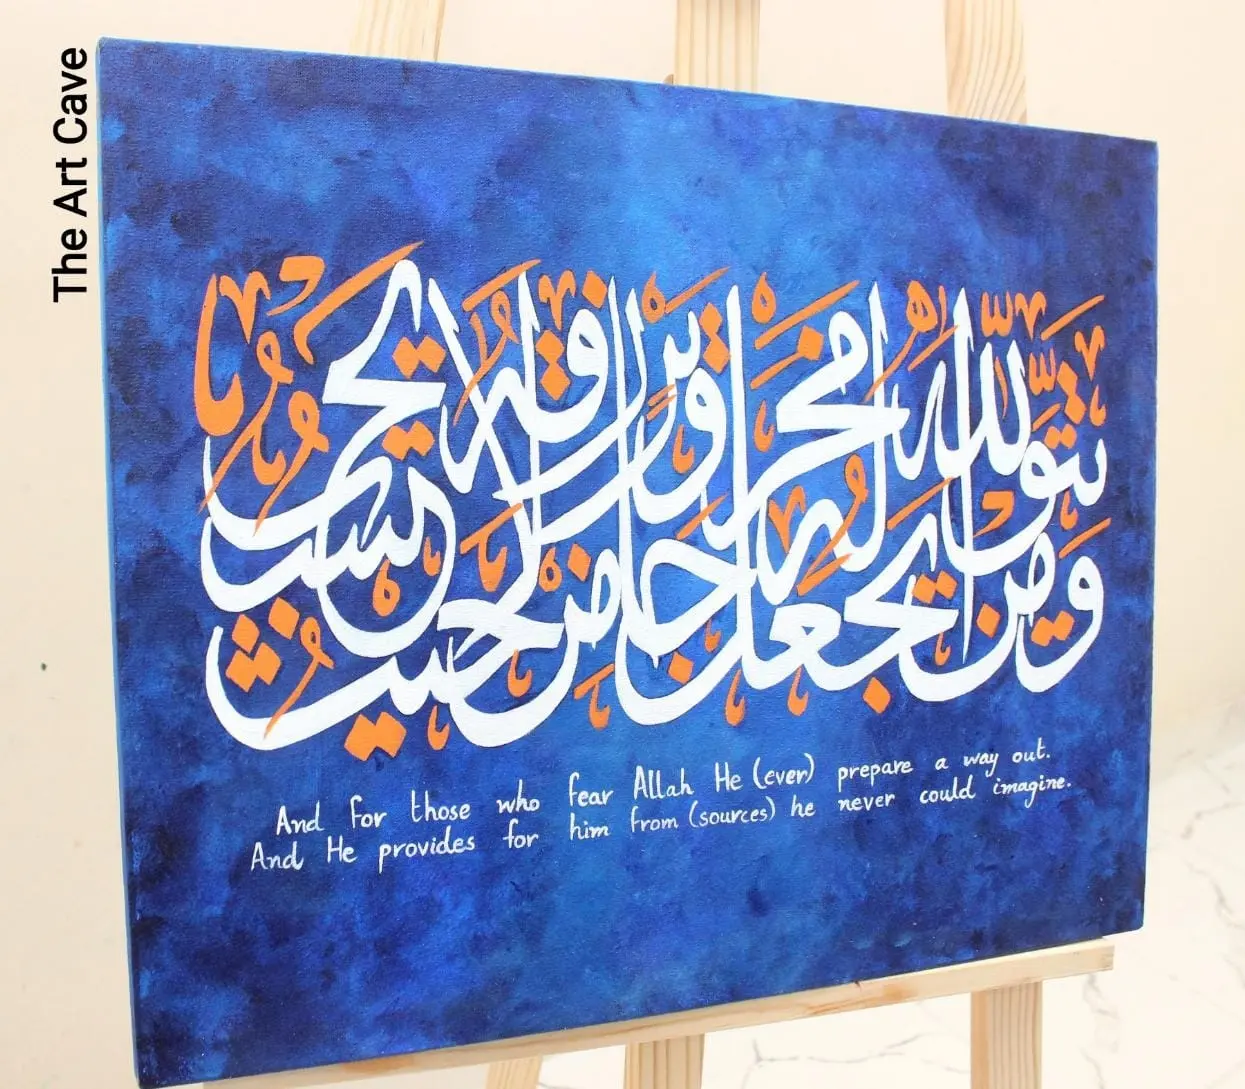 The Art Cave
ومن يتق الله يجعل له مخرجا ويرزقه من حيث لا يحتسب
And for those who fear Allah He (ever) prepare a way out.
And He provides for him from (sources) he never could imagine.